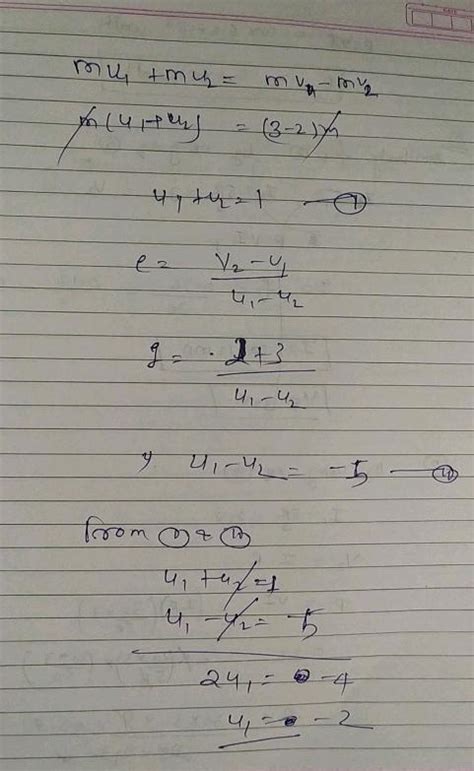 mu₁ + mu₂ = mv₁ - mv₂
m(u₁+u₂) = (3-2)m
u₁+u₂ = 1 — ①
e = V₂ - V₁ / u₁-u₂
= 2+3 / u₁-u₂
u₁-u₂ = -5 —
From ① &
u₁ + u₂ = 1
u₁ - u₂ = -5
2u₁ = -4
u₁ = -2